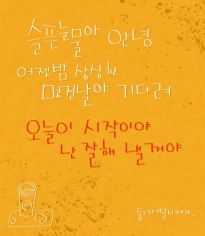 슬픈눈물아 안녕
어젯밤 상상한
멋진날아 기다려
오늘이 시작이야
난 잘해 낼거야